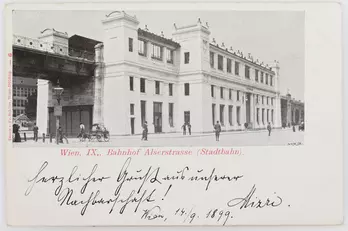 Wien, IX., Bahnhof Alserstrasse (Stadtbahn).
Herzlicher Gruß aus unserer
Nachbarschaft!
Mizzi.
Wien, 14/9. 1899.